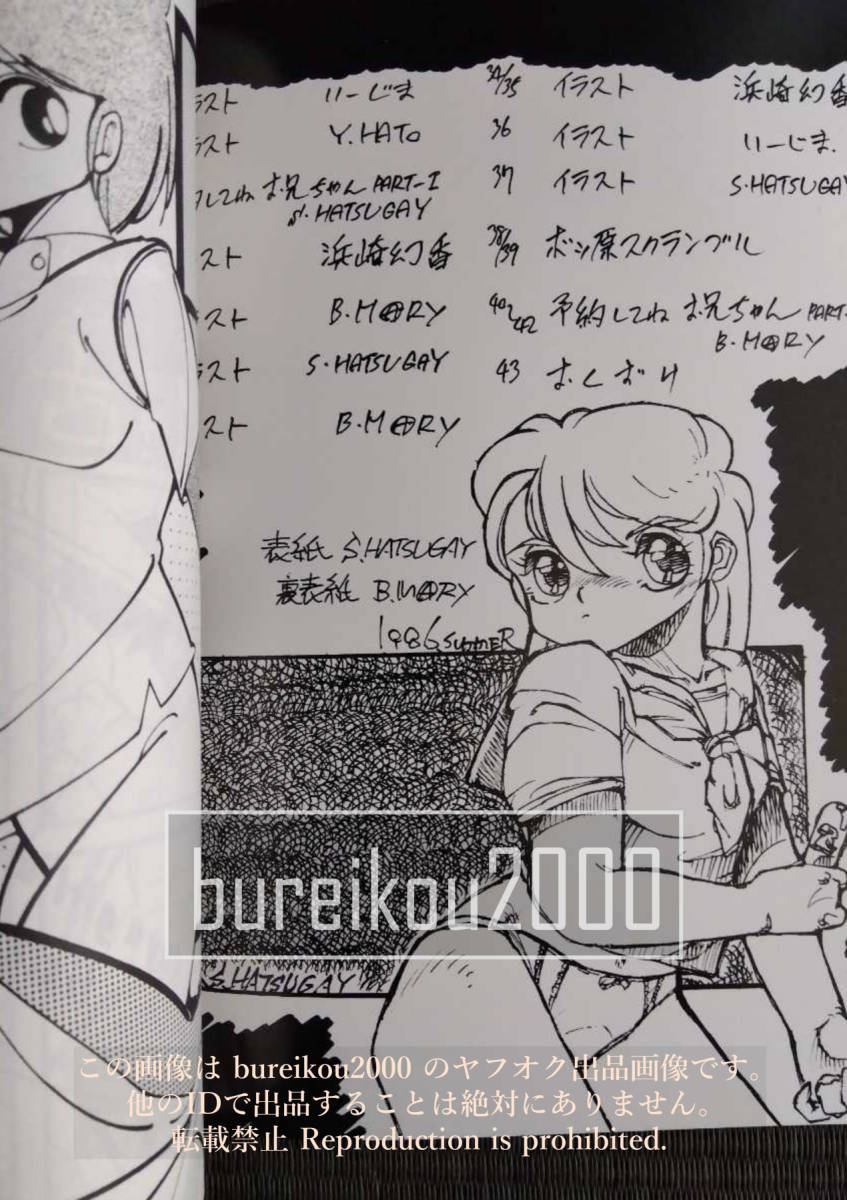 スト いーじま
スト Y.HATO
してね お兄ちゃん PART-I
S.HATSUGAY
スト 浜崎幻香
スト B.M@RY
スト S.HATSUGAY
スト B.M@RY
34/35 イラスト 浜崎幻香
36 イラスト いーじま.
37 イラスト S.HATSUGAY
38/39 ボツ原スクランブル
40~42 予約してね お兄ちゃん PART-
B.M@RY
43 おくずけ
表紙 S.HATSUGAY
裏表紙 B.M@RY
1986 SUMMER
bureikou2000
S.HATSUGAY
この画像は bureikou2000 のヤフオク出品画像です。
他のIDで出品することは絶対にありません。
転載禁止 Reproduction is prohibited.